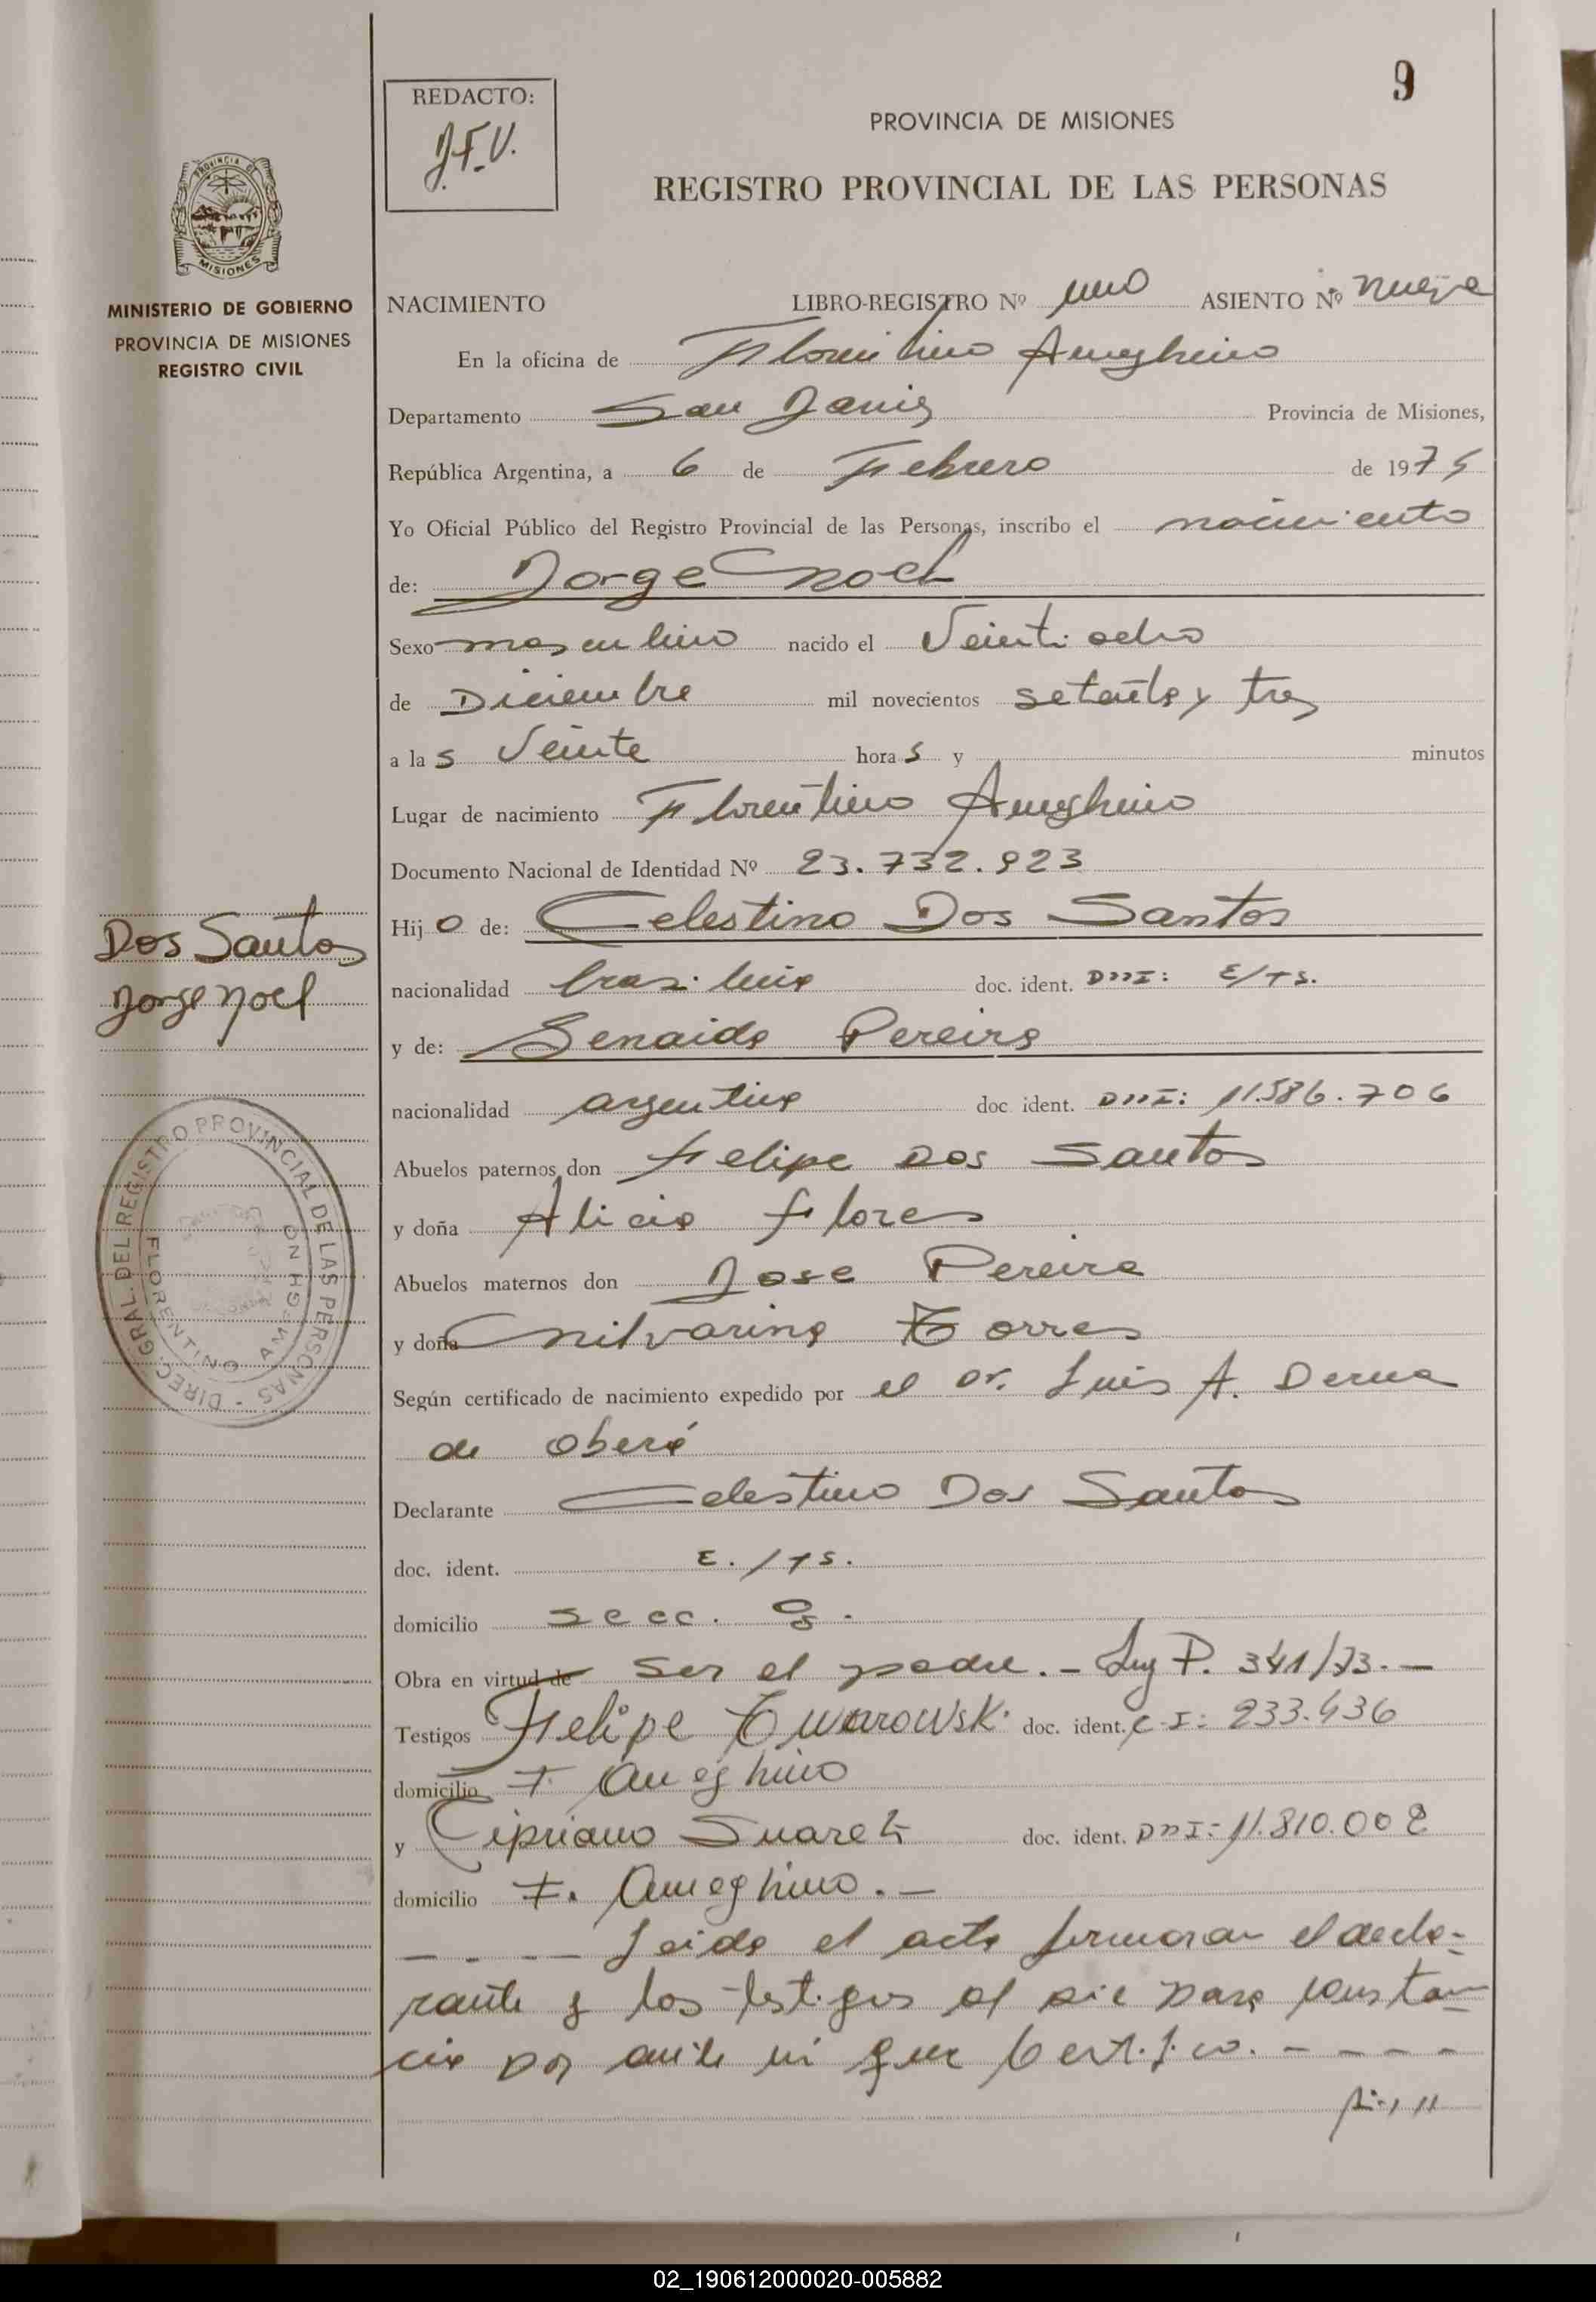 9
REDACTO:
J.F.V.
PROVINCIA DE MISIONES
REGISTRO PROVINCIAL DE LAS PERSONAS
PROVINCIA DE
MISIONES
MINISTERIO DE GOBIERNO
PROVINCIA DE MISIONES
REGISTRO CIVIL
NACIMIENTO LIBRO-REGISTRO Nº uno ASIENTO Nº nueve
En la oficina de Florentino Ameghino
Departamento San Javier Provincia de Misiones,
República Argentina, a 6 de Febrero de 197
Yo Oficial Público del Registro Provincial de las Personas, inscribo el nacimiento
de: Jorge Noel
Sexo masculino nacido el Veintiocho
de Diciembre mil novecientos setenta y tres
a las Veinte horas y minutos
Lugar de nacimiento Florentino Ameghino
Documento Nacional de Identidad Nº 23.732.923
Hijo de: Celestino Dos Santos
nacionalidad brasileña doc. ident. DNI: E/TS.
y de: Senaida Pereira
nacionalidad argentina doc. ident. DNI: 11.586.706
Abuelos paternos don Felipe Dos Santos
y doña Alicia Flores
Abuelos maternos don Jose Pereira
y doña Nilvarina Torres
Según certificado de nacimiento expedido por el Dr. Luis A. Derna
de Oberá
Declarante Celestino Dos Santos
doc. ident. E./TS.
domicilio secc. 8.
Obra en virtud de ser el padre. - Ley P. 341/73. -
Testigos Felipe Twarowski doc. ident. C.I: 233.436
domicilio F. Ameghino
y Cipriano Suarez doc. ident. DNI: 11.810.002
domicilio F. Ameghino. -
- - - - Leida el acta firmaran el decla-
rante y los testigos al pie para constan-
cia por ante mi que Certifico. - - - -
Dos Santos
Jorge Noel
DIREC. GRAL. DEL REGISTRO PROVINCIAL DE LAS PERSONAS -
FLORENTINO AMEGHINO
02_190612000020-005882